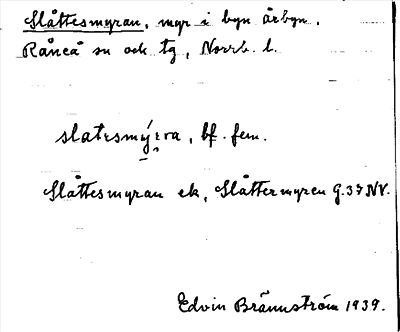 Slåttesmyran, myr i byn Årbyn,
Råneå sn och tg, Norrb. l.
slatesmýra, bf. fem.
Slåttesmyran ek, Slåttermyren G.37 NV.
Edvin Brännström 1939.